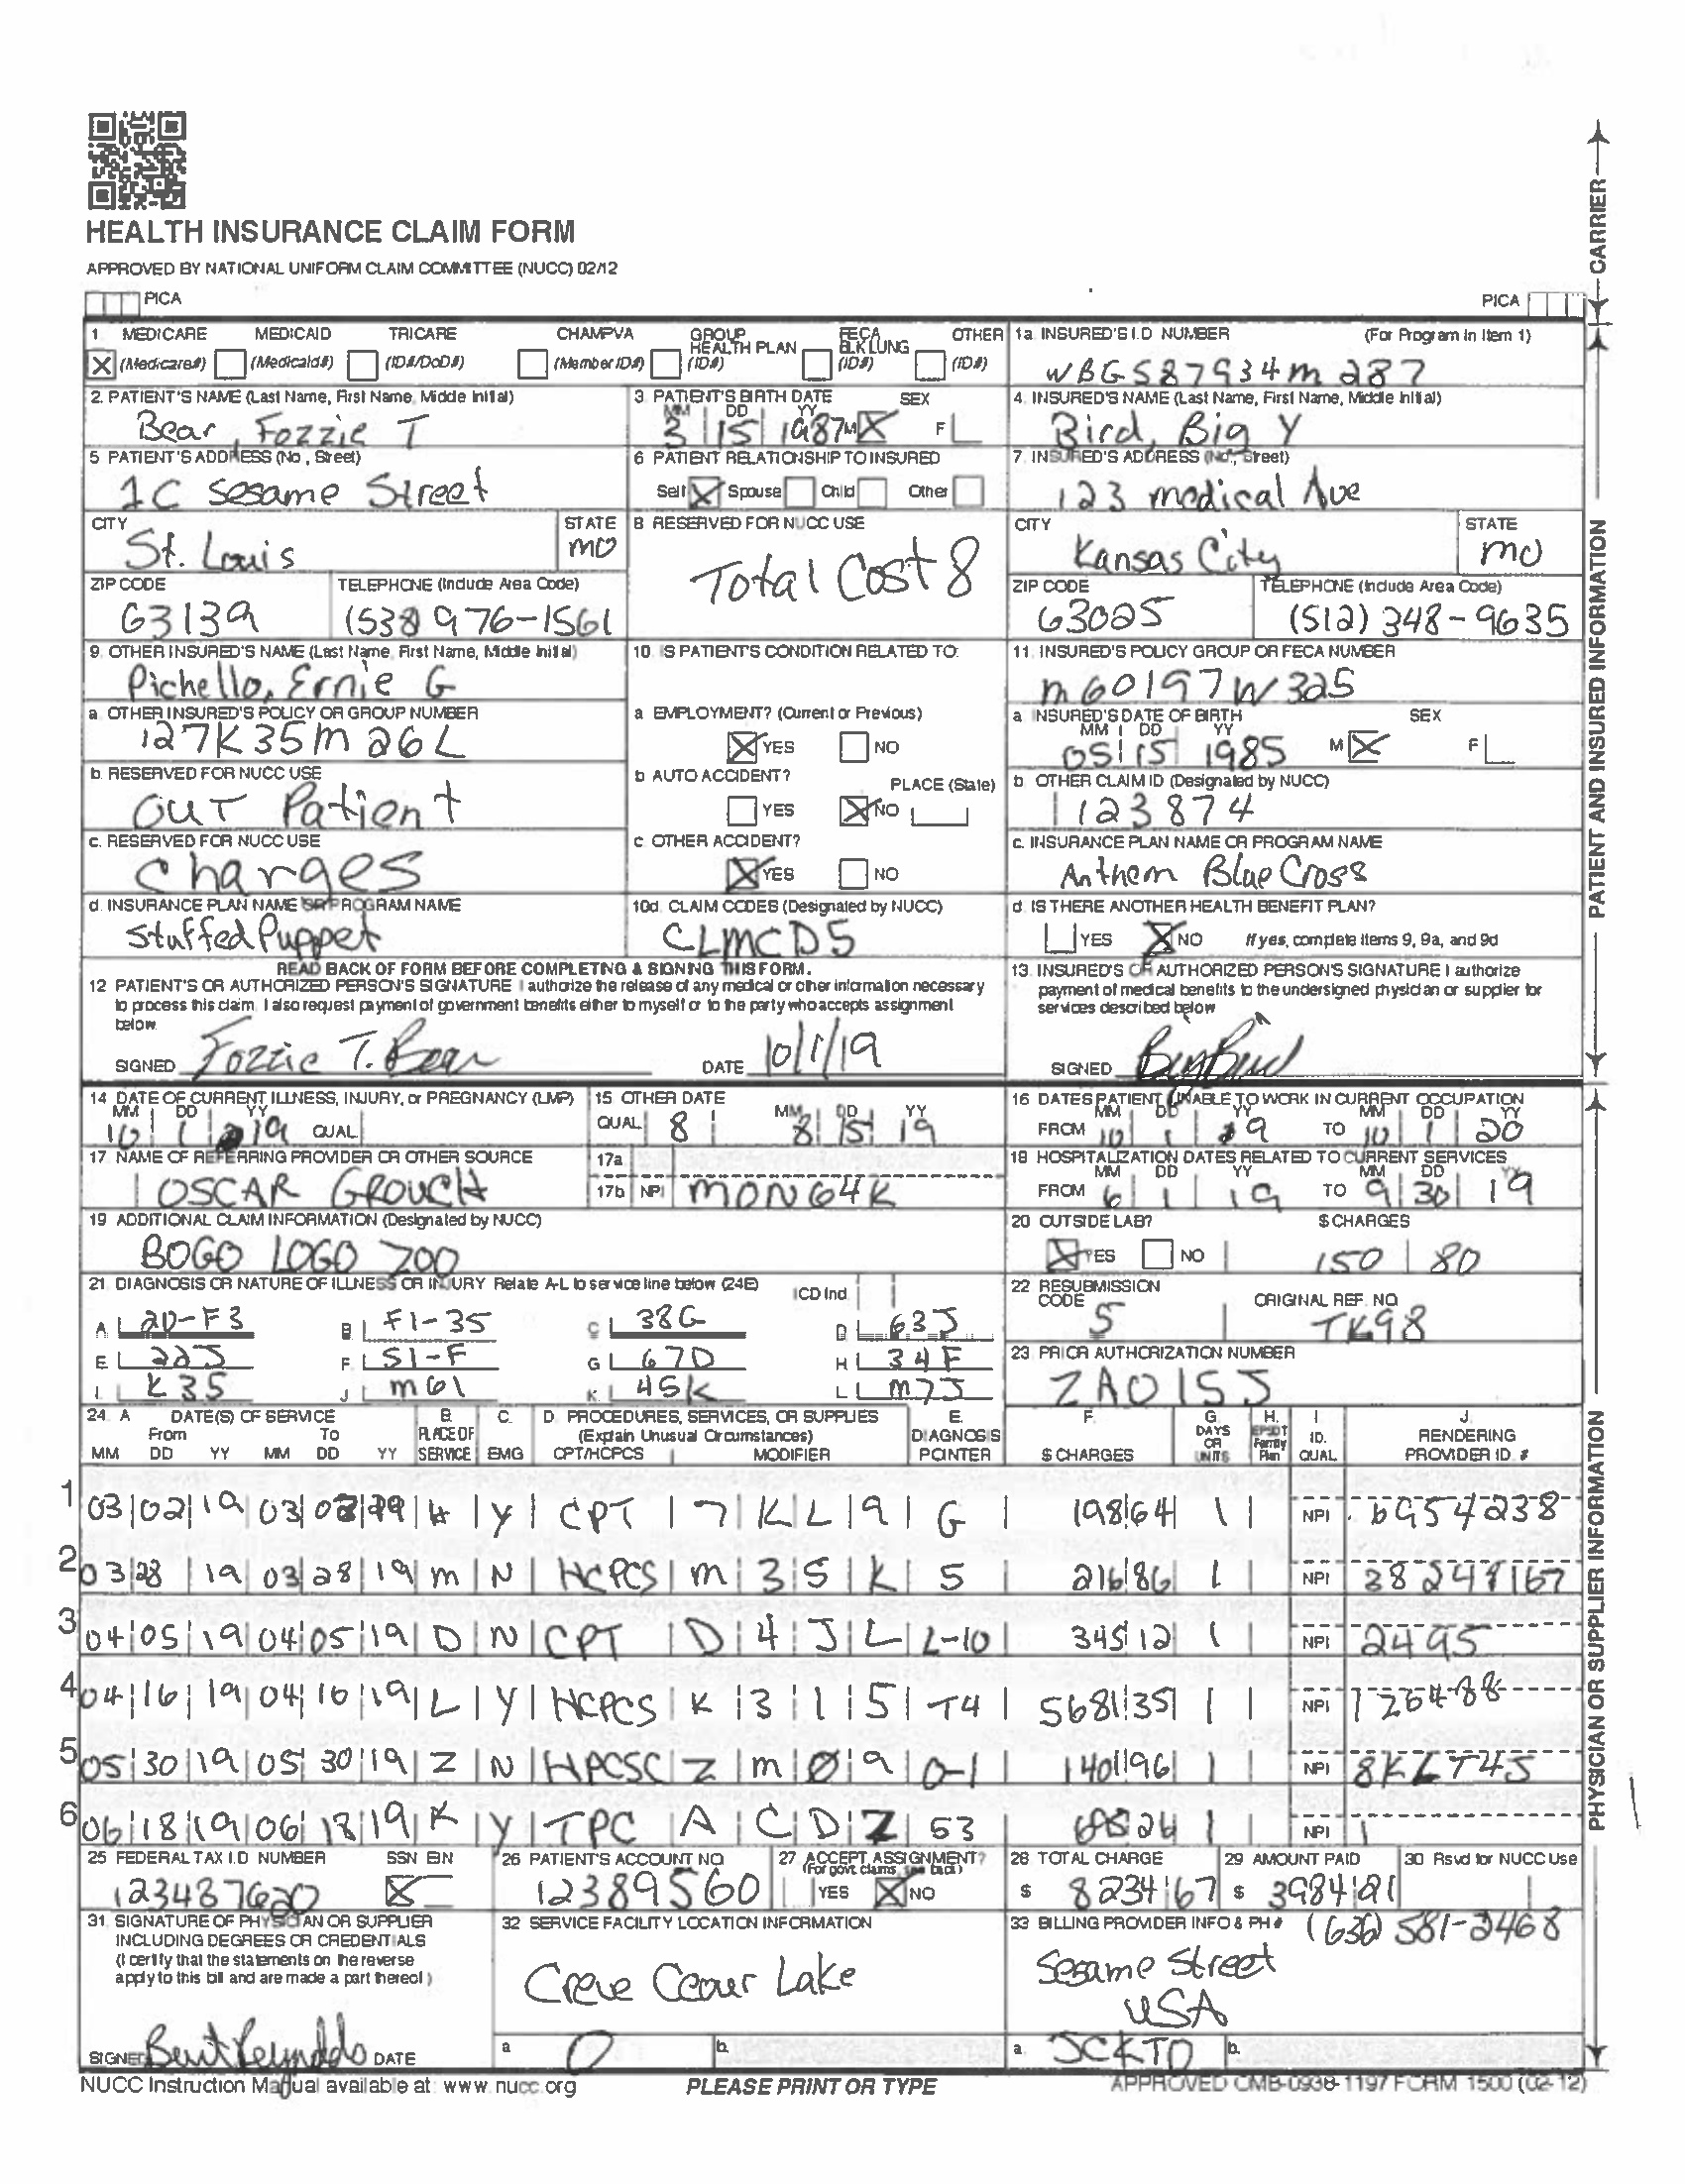 HEALTH INSURANCE CLAIM FORM
APPROVED BY NATIONAL UNIFORM CLAIM COMMITTEE (NUCC) 02/12
PICA PICA
CARRIER
1 MEDICARE MEDICAID TRICARE CHAMPVA GROUP HEALTH PLAN FECA BLK LUNG OTHER
X (Medicare#) (Medicaid#) (ID#/DoD#) (Member ID#) (ID#) (ID#) (ID#)
1a INSURED'S I.D NUMBER (For Program in Item 1)
WBGS87934M287
2. PATIENT'S NAME (Last Name, First Name, Middle Initial)
Bear, Fozzie T
3 PATIENT'S BIRTH DATE SEX
MM DD YY
3 15 1987 M X F
4. INSURED'S NAME (Last Name, First Name, Middle Initial)
Bird, Big Y
5 PATIENT'S ADDRESS (No, Street)
1C Sesame Street
6 PATIENT RELATIONSHIP TO INSURED
Self X Spouse Child Other
7. INSURED'S ADDRESS (No., Street)
123 medical Ave
CITY STATE
St. Louis MO
8 RESERVED FOR NUCC USE
Total Cost 8
CITY STATE
Kansas City MO
ZIP CODE TELEPHONE (Include Area Code)
63139 976-1561
ZIP CODE TELEPHONE (Include Area Code)
63025 (512) 348-9635
9. OTHER INSURED'S NAME (Last Name, First Name, Middle Initial)
Pichello, Ernie G
10 IS PATIENT'S CONDITION RELATED TO:
11. INSURED'S POLICY GROUP OR FECA NUMBER
M60197W325
a OTHER INSURED'S POLICY OR GROUP NUMBER
127K35M26L
a EMPLOYMENT? (Current or Previous)
X YES NO
a INSURED'S DATE OF BIRTH SEX
MM DD YY
05 15 1985 M X F
b. RESERVED FOR NUCC USE
OUT Patient
b AUTO ACCIDENT? PLACE (State)
YES X NO
b OTHER CLAIM ID (Designated by NUCC)
123874
c. RESERVED FOR NUCC USE
Charges
c OTHER ACCIDENT?
X YES NO
c. INSURANCE PLAN NAME OR PROGRAM NAME
Anthem Blue Cross
d. INSURANCE PLAN NAME OR PROGRAM NAME
Stuffed Puppet
10d. CLAIM CODES (Designated by NUCC)
CLMCD5
d. IS THERE ANOTHER HEALTH BENEFIT PLAN?
YES X NO If yes, complete items 9, 9a, and 9d
PATIENT AND INSURED INFORMATION
READ BACK OF FORM BEFORE COMPLETING & SIGNING THIS FORM.
12 PATIENT'S OR AUTHORIZED PERSON'S SIGNATURE I authorize the release of any medical or other information necessary
to process this claim. I also request payment of government benefits either to myself or to the party who accepts assignment
below
SIGNED Fozzie T. Bear DATE 10/1/19
13. INSURED'S OR AUTHORIZED PERSON'S SIGNATURE I authorize
payment of medical benefits to the undersigned physician or supplier for
services described below
SIGNED Big Bird
14 DATE OF CURRENT ILLNESS, INJURY, or PREGNANCY (LMP)
MM DD YY
10 1 19 QUAL
15 OTHER DATE
QUAL 8 MM DD YY
8 15 19
16 DATES PATIENT UNABLE TO WORK IN CURRENT OCCUPATION
MM DD YY MM DD YY
FROM 10 1 TO 10 1 20
17. NAME OF REFERRING PROVIDER OR OTHER SOURCE
OSCAR GROUCH
17a
17b NPI MON64K
18 HOSPITALIZATION DATES RELATED TO CURRENT SERVICES
MM DD YY MM DD YY
FROM 6 1 19 TO 9 30 19
19 ADDITIONAL CLAIM INFORMATION (Designated by NUCC)
BOGO LOGO 700
20 OUTSIDE LAB? $ CHARGES
X YES NO 150 80
21. DIAGNOSIS OR NATURE OF ILLNESS OR INJURY Relate A-L to service line below (24E) ICD Ind
A 20-F3 B F1-35 C 38G D 63J
E 22J F. 51-F G 67D H 34F
I. K35 J M61 K 45K L M7J
22 RESUBMISSION CODE ORIGINAL REF. NO
5 TK98
23 PRIOR AUTHORIZATION NUMBER
ZA015J
24. A DATE(S) OF SERVICE B. C. D. PROCEDURES, SERVICES, OR SUPPLIES E. F. G. H. I. J.
From To PLACE OF (Explain Unusual Circumstances) DIAGNOSIS DAYS OR EPSDT Family ID. RENDERING
MM DD YY MM DD YY SERVICE EMG CPT/HCPCS MODIFIER POINTER $ CHARGES UNITS Plan QUAL PROVIDER ID. #
1 03 02 19 03 Y CPT 7 KL 9 G 198 64 1 NPI 6954238
2 03 28 19 03 28 19 M N HCPCS M 3 5 K 5 216 86 1 NPI
3 04 05 19 04 05 19 D N CPT D 4 J L L-10 345 12 1 NPI 2495
4 04 16 19 04 16 19 L Y HCPCS K 3 1 5 T4 5681 35 1 NPI 126488
5 05 30 19 05 30 19 Z N HPCSC Z M Ø 9 O-1 1401 96 1 NPI 8KLT45
6 06 18 19 06 18 19 K Y TPC A C D Z 53 1 NPI 1
25 FEDERAL TAX I.D NUMBER SSN EIN
1234387620 X
26 PATIENT'S ACCOUNT NO.
12389560
27 ACCEPT ASSIGNMENT?
(For govt. claims, see back)
YES X NO
28 TOTAL CHARGE
$ 8234 67
29 AMOUNT PAID
$ 3984 21
30 Rsvd for NUCC Use
31. SIGNATURE OF PHYSICIAN OR SUPPLIER
INCLUDING DEGREES OR CREDENTIALS
(I certify that the statements on the reverse
apply to this bill and are made a part thereof)
SIGNED Burt Reynolds DATE
32 SERVICE FACILITY LOCATION INFORMATION
Creve Ceour Lake
a 0 b.
33 BILLING PROVIDER INFO & PH # (636) 581-2468
Sesame Street
USA
a. JCKTO b.
PHYSICIAN OR SUPPLIER INFORMATION
NUCC Instruction Manual available at: www.nucc.org PLEASE PRINT OR TYPE APPROVED OMB-0938-1197 FORM 1500 (02-12)